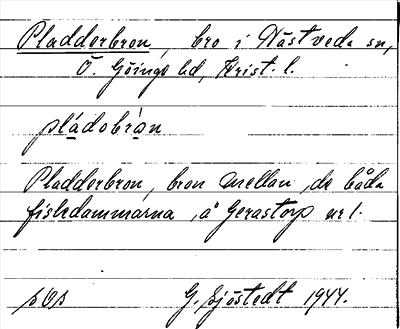 Pladderbron, bro i Nästveda sn,
Ö. Göinge hd, Krist. l.
pládobrȯn
Pladderbron, bron mellan de båda
fiskdammarna, å Gerastorp nr 1.
G. Sjöstedt 1944.